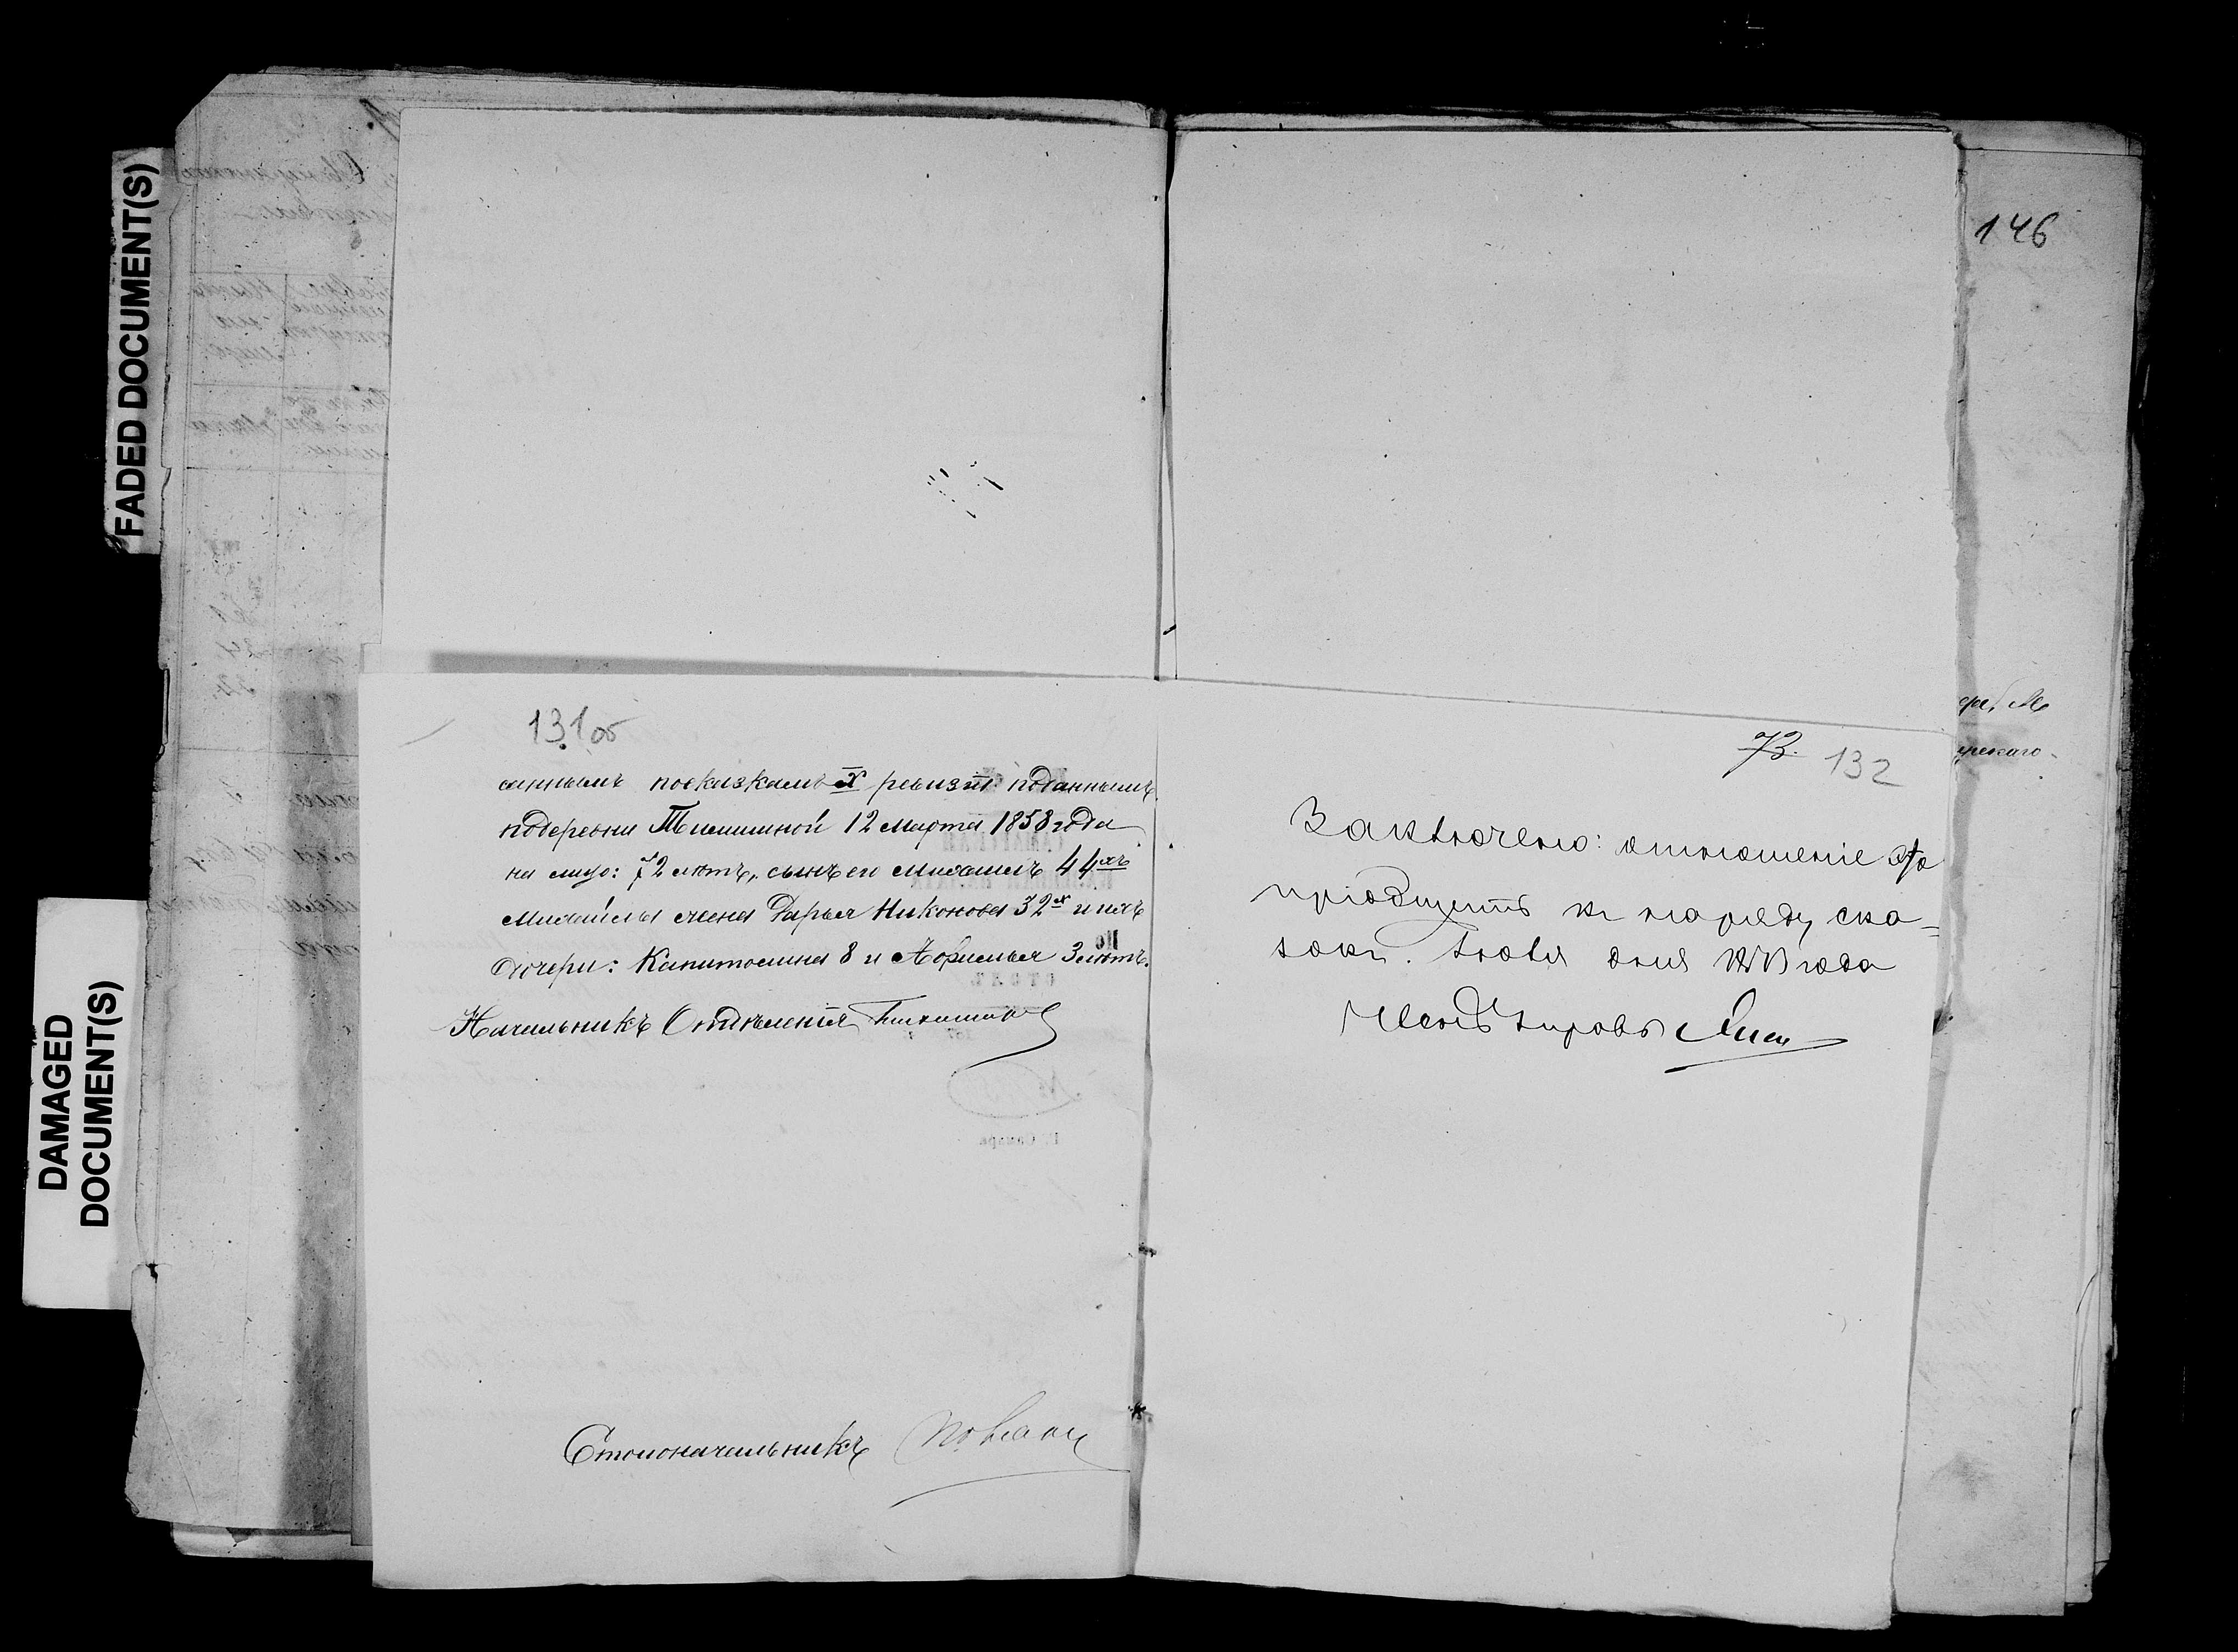 FADED DOCUMENT(S)
DAMAGED
DOCUMENT(S)
146
131 об
саннымъ посказкамъ X ревизіи поданнымъ
подеревни 12 Марта 1858 года
на лицо: 72 лѣтъ, сынъ его Михаилъ 44хъ
Михайлы жена Дарья Никонова 32х и ихъ
дочери: Капитолина 8 и Афимья 3 лѣтъ.
Начальникъ Отдѣленія
Столоначальникъ
73. 132
Заключено: отношеніе это
пріобщить къ наряду ска-
зокъ. Іюля дня года